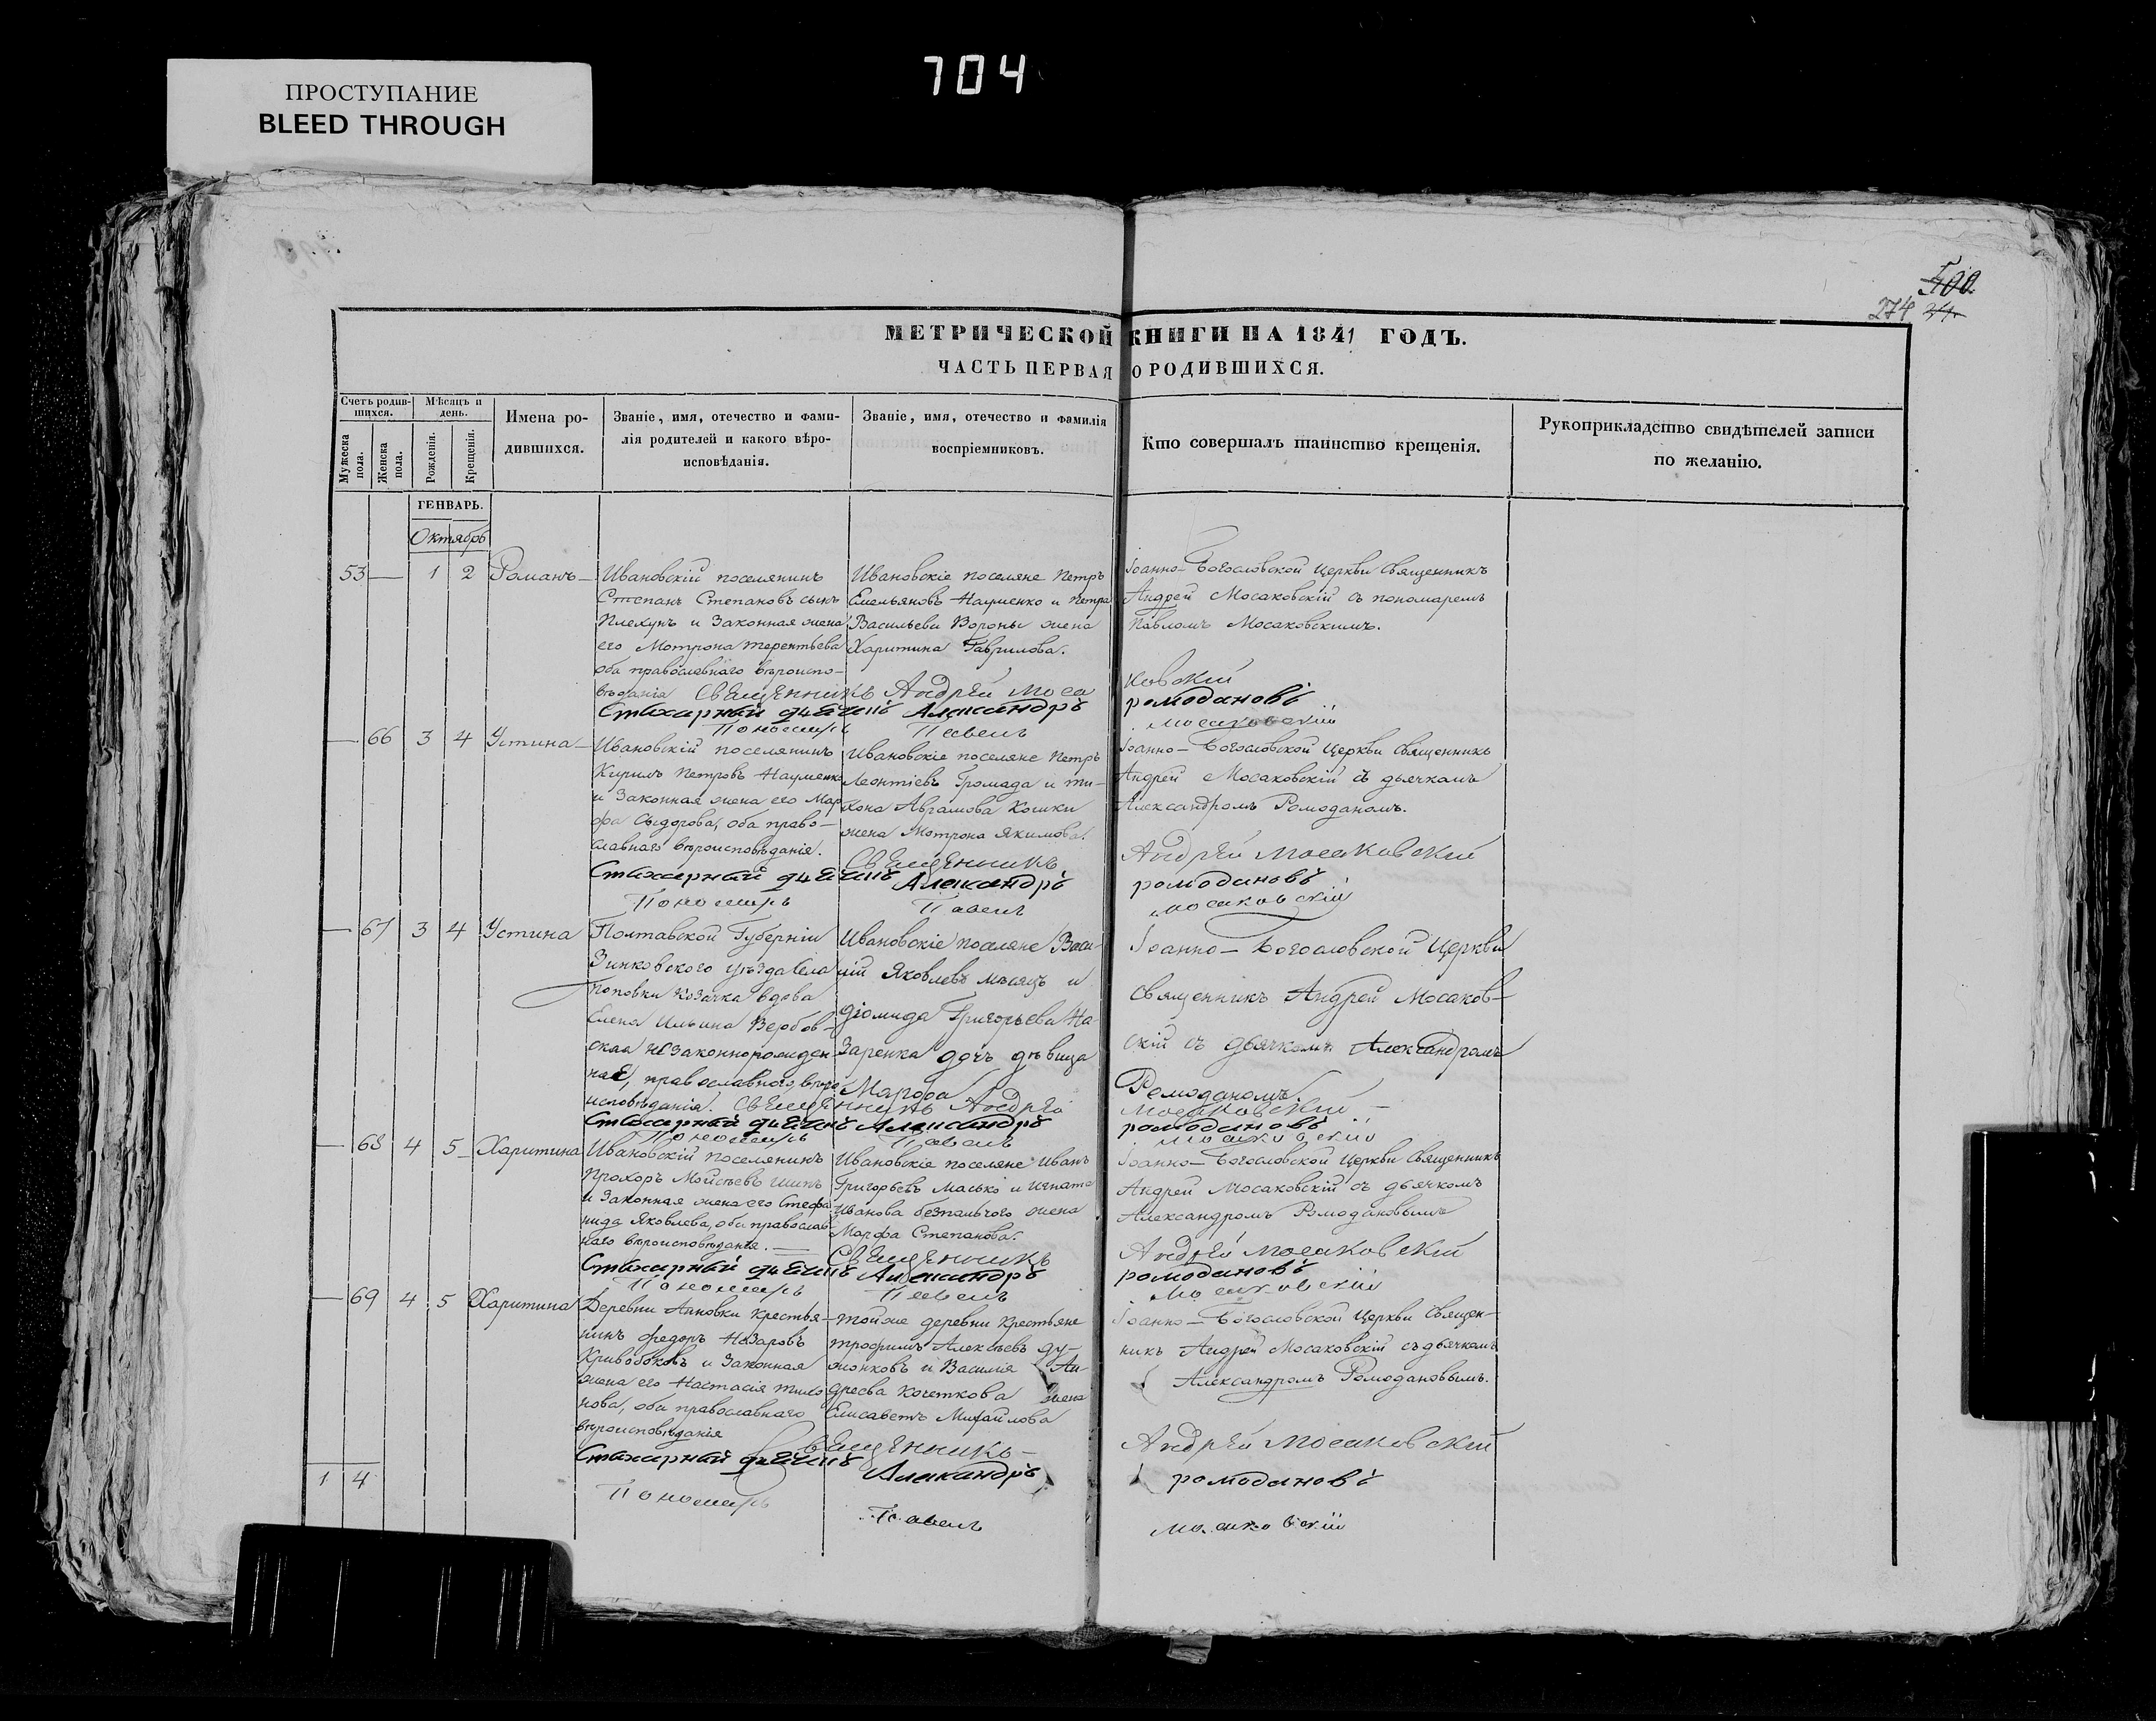 704
ПРОСТУПАНИЕ
BLEED THROUGH
500.
274
МЕТРИЧЕСКОЙ КНИГИ НА 1841 ГОДЪ.
ЧАСТЬ ПЕРВАЯ О РОДИВШИХСЯ.
Счетъ родившихся.
Мужеска пола.
Женска пола.
Мѣсяцъ и день.
Рожденія.
Крещенія.
Имена родившихся.
Званіе, имя, отечество и фамилія родителей и какого вѣроисповѣданія.
Званіе, имя, отечество и фамилія воспріемниковъ.
Кто совершалъ таинство крещенія.
Рукоприкладство свидѣтелей записи по желанію.
ГЕНВАРЬ.
Октябрь
53 — 1 2 Романъ —
Ивановскій поселянинъ
Степанъ Степановъ сынъ
Плехунъ и Законная жена
его Мотрона терентьева
оба православнаго вѣроиспо-
вѣданія
Ивановскіе поселяне Петръ
Емельяновъ Науменко и Петра
Васильева Вороны жена
Харитина Гаврилова.
Іоанно-Богословской Церкви Священникъ
Андрей Мосаковскій съ пономаремъ
Павломъ Мосаковскимъ.
Священникъ Андрей Мосаковскій
Стихарный дьячекъ Александръ ромодановъ
Пономарь Павелъ мосаковскій
— 66 3 4 Устина —
Ивановскій поселянинъ
Кирилъ Петровъ Науменко
и Законная жена его Мар-
фа Сидорова, оба право-
славнаго вѣроисповѣданія.
Ивановскіе поселяне Петръ
Леонтіевъ Громада и ти-
хона Аврамова Кошки
жена Мотрона Якимова.
Іоанно-Богословской Церкви Священникъ
Андрей Мосаковскій съ дьячкомъ
Александромъ Ромоданомъ.
Священникъ Андрей Мосаковскій
Стихарный дьячекъ Александръ ромодановъ
Пономарь Павелъ мосаковскій
— 67 3 4 Устина
Полтавской Губерніи
Зинковского уѣзда Села
поповки козачка вдова
Елена Ильина Вербов-
ская незаконнорожден-
наѣ, православного вѣро
исповѣданія.
Ивановскіе поселяне Васи-
лій Яковлевъ мѣсяцъ и
діомида Григорьева На-
заренка дочь дѣвица
Марфа
Іоанно-Богословской Церкви
Священникъ Андрей Мосаков-
скій съ дьячкомъ Александромъ
Ромоданомъ.
Священникъ Андрей Мосаковскій —
Стихарный дьячекъ Александръ ромодановъ
Пономарь Павелъ мосаковскій
— 68 4 5 Харитина
Ивановскій поселянинъ
Прохоръ Мойсѣевъ
и Законная жена его Стефа-
нида Яковлева, оба православ-
наго вѣроисповѣданія.
Ивановскіе поселяне Иванъ
Григорьевъ Масько и Игната
Иванова безпальчого жена
Марфа Степанова.
Іоанно-Богословской Церкви Священникъ
Андрей Мосаковскій съ дьячкомъ
Александромъ Ромодановымъ
Священникъ Андрей Мосаковскій
Стихарный дьячекъ Александръ ромодановъ
Пономарь Павелъ мосаковскій
— 69 4 5 Харитина
Деревни Анновки крестья-
нинъ федоръ Назаровъ
Кривобоковъ и Законная
жена его Настасія тимо
нова, оба православнаго
вѣроисповѣданія
тойже деревни крестьяне
трофимъ Алексѣевъ ду-
жонковъ и Василія Ан-
дреева Кочеткова жена
Елисаветъ Михайлова
Іоанно-Богословской Церкви Священ-
никъ Андрей Мосаковскій съ дьячкомъ
Александромъ Ромодановымъ.
Священникъ — Андрей Мосаковскій
Стихарный дьячекъ Александръ ромодановъ
Пономарь Павелъ мосаковскій
1 4